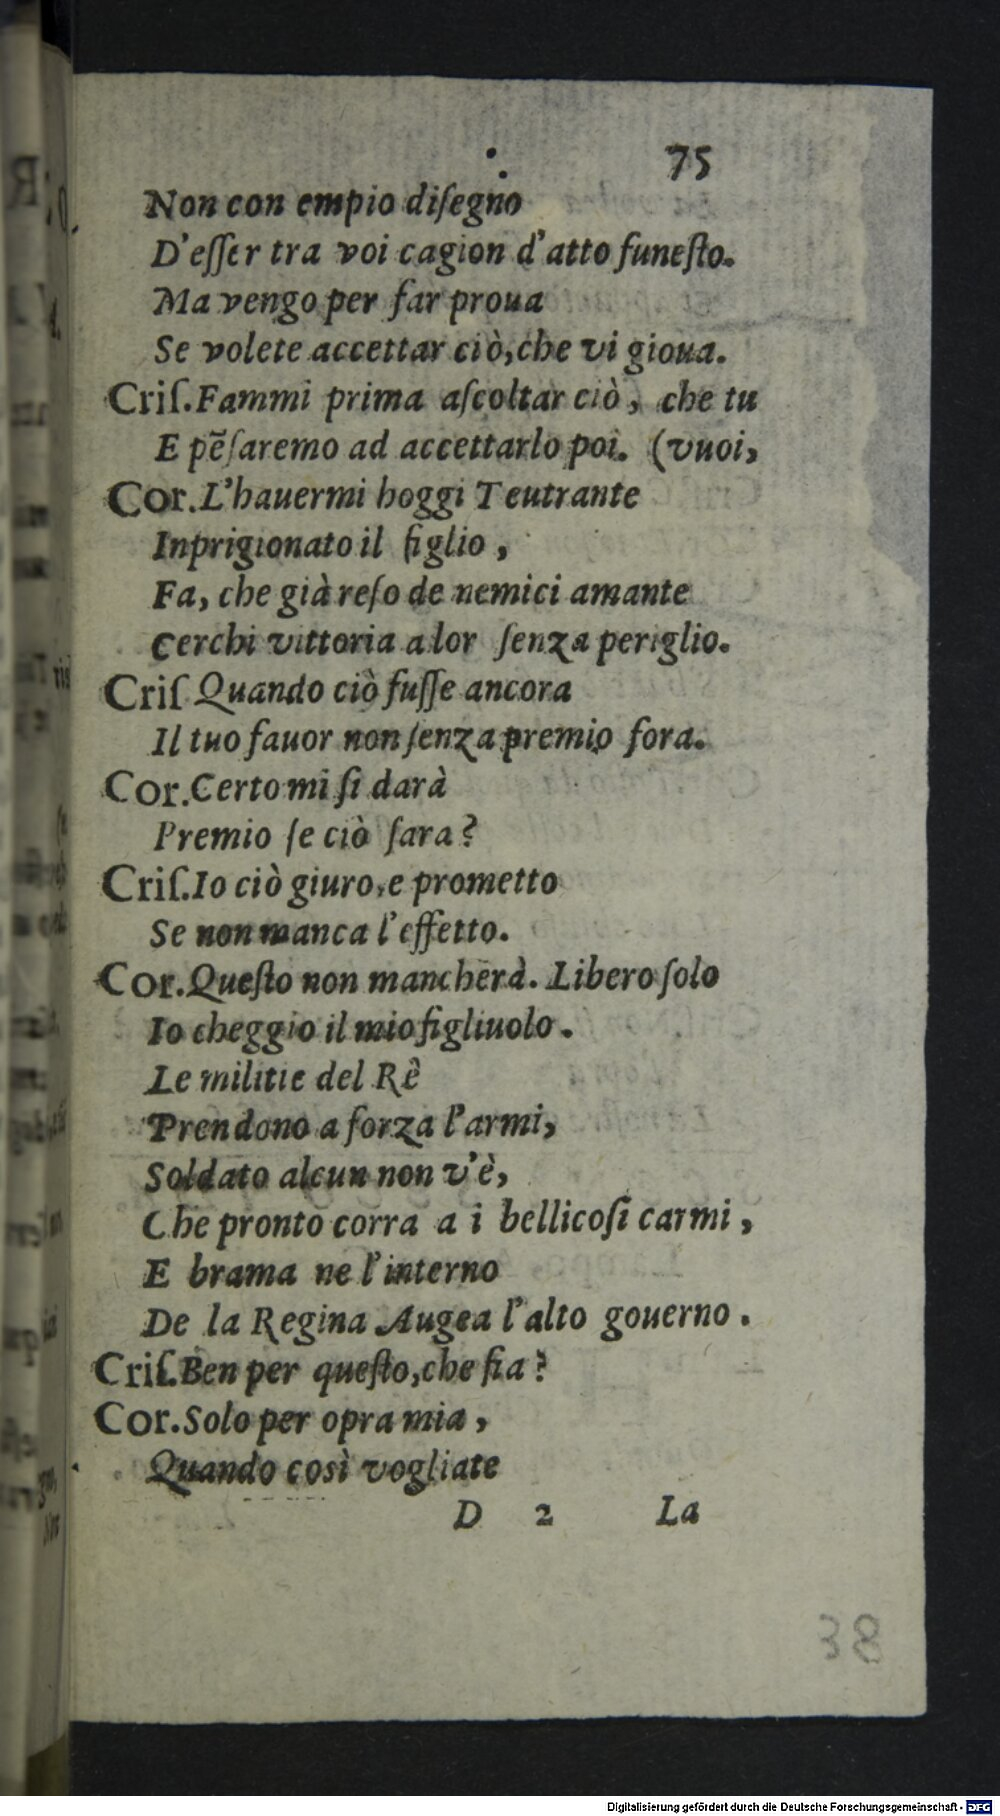 75
Non con empio diſegno
D'eſſer tra voi cagion d'atto funeſto.
Ma vengo per far proua
Se volete accettar ciò, che vi gioua.
Criſ. Fammi prima aſcoltar ciò, che tu
E pẽſaremo ad accettarlo poi. (vuoi,
Cor. L'hauermi hoggi Teutrante
Inprigionato il figlio,
Fa, che già reſo de nemici amante
Cerchi vittoria a lor ſenza periglio.
Criſ Quando ciò fuſſe ancora
Il tuo fauor non ſenza premio fora.
Cor. Certo mi ſi darà
Premio ſe ciò ſara?
Criſ. Io ciò giuro, e prometto
Se non manca l'effetto.
Cor. Queſto non mancherà. Libero ſolo
Io cheggio il mio figliuolo.
Le militie del Rè
Prendono a forza l'armi,
Soldato alcun non v'è,
Che pronto corra a i bellicoſi carmi,
E brama ne l'interno
De la Regina Augea l'alto gouerno.
Criſ. Ben per queſto, che fia?
Cor. Solo per opra mia,
Quando così vogliate
D 2 La
38
Digitalisierung gefördert durch die Deutsche Forschungsgemeinschaft - DFG